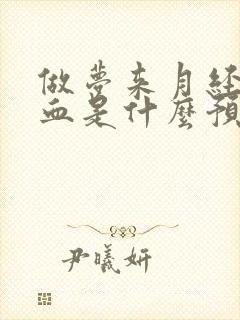 做夢来月经
血是什麼預
尹曦妍